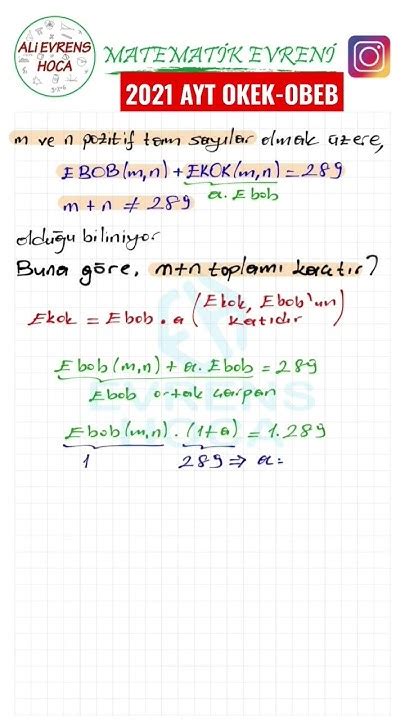 ALİ EVRENS
HOCA
MATEMATİK EVRENİ
2021 AYT OKEK-OBEB
m ve n pozitif tam sayılar olmak üzere,
EBOB(m,n) + EKOK(m,n) = 289
a. Ebob
m + n ≠ 289
olduğu biliniyor
Buna göre, m+n toplamı kaçtır?
Ekok = Ebob . a (Ekok, Ebob'un katıdır)
Ebob(m,n) + a. Ebob = 289
Ebob ortak çarpan
EVRENS
HOCA
Ebob(m,n) . (1+a) = 1.289
1 289 ⇒ a =